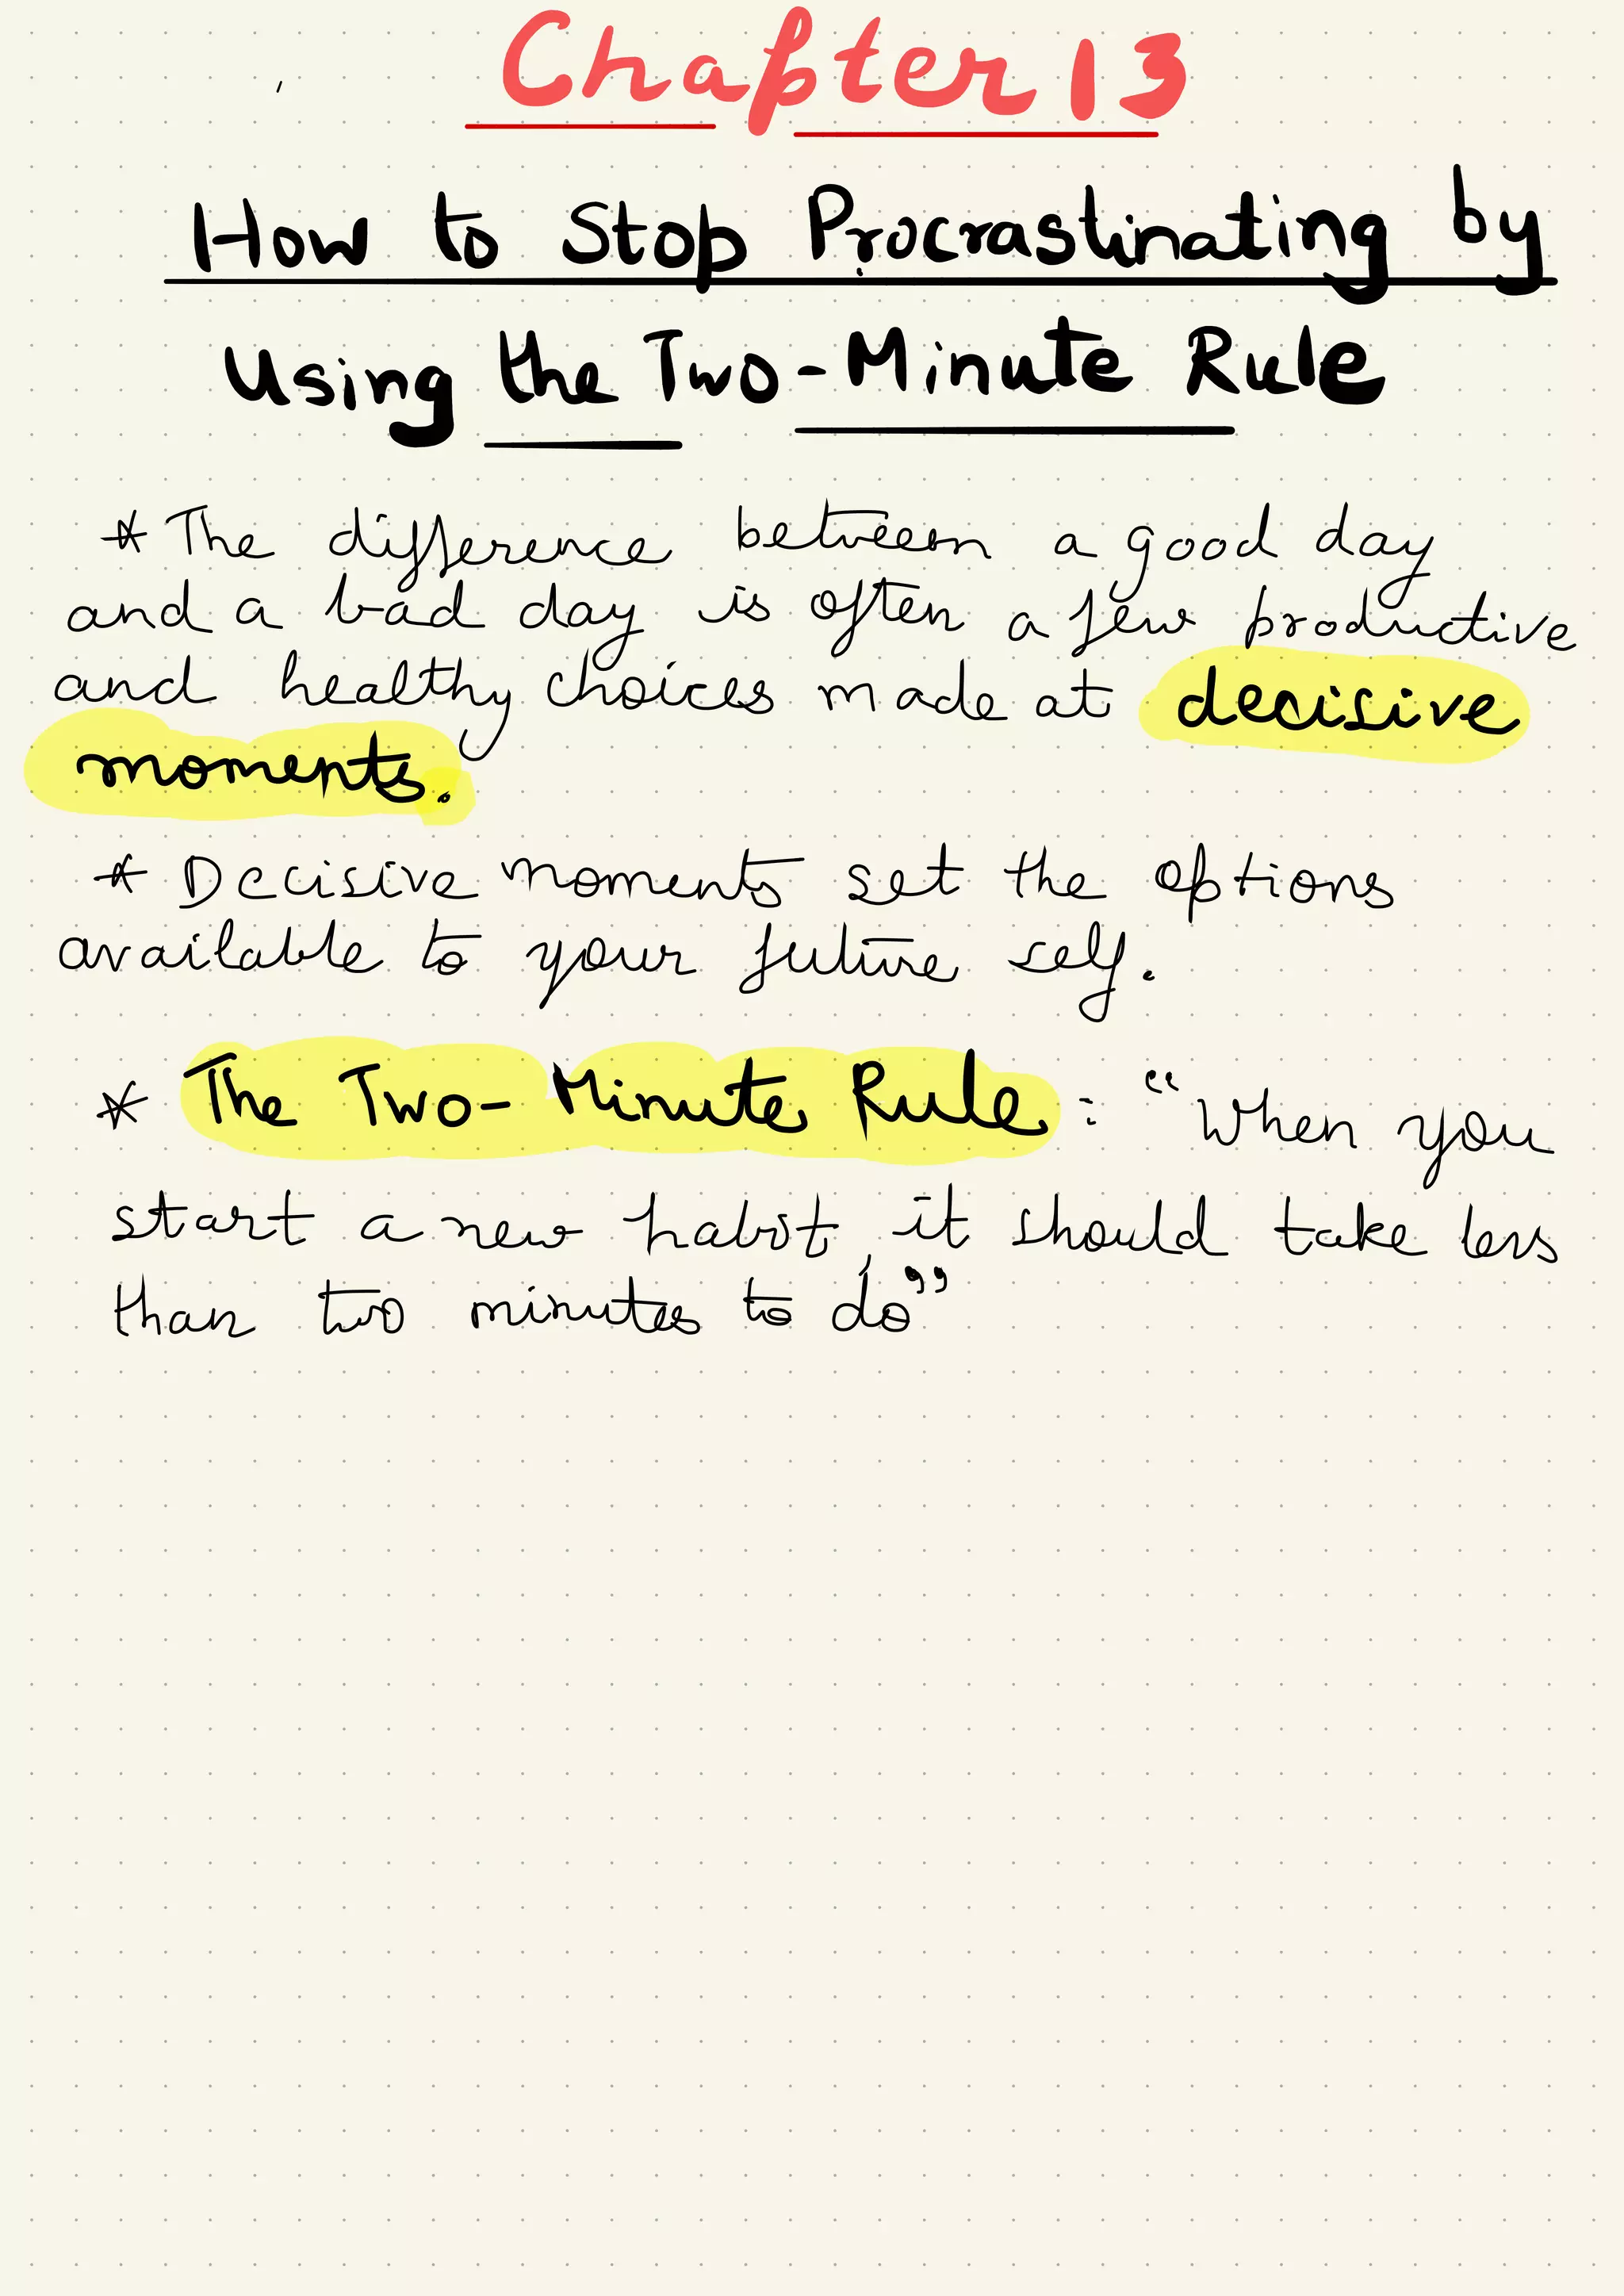 Chapter 13
How to Stop Procrastinating by
Using the Two-Minute Rule
* The difference between a good day
and a bad day is often a few productive
and healthy choices made at decisive
moments.
* Decisive moments set the options
available to your future self.
* The Two-Minute Rule : “When you
start a new habit, it should take less
than two minutes to do”